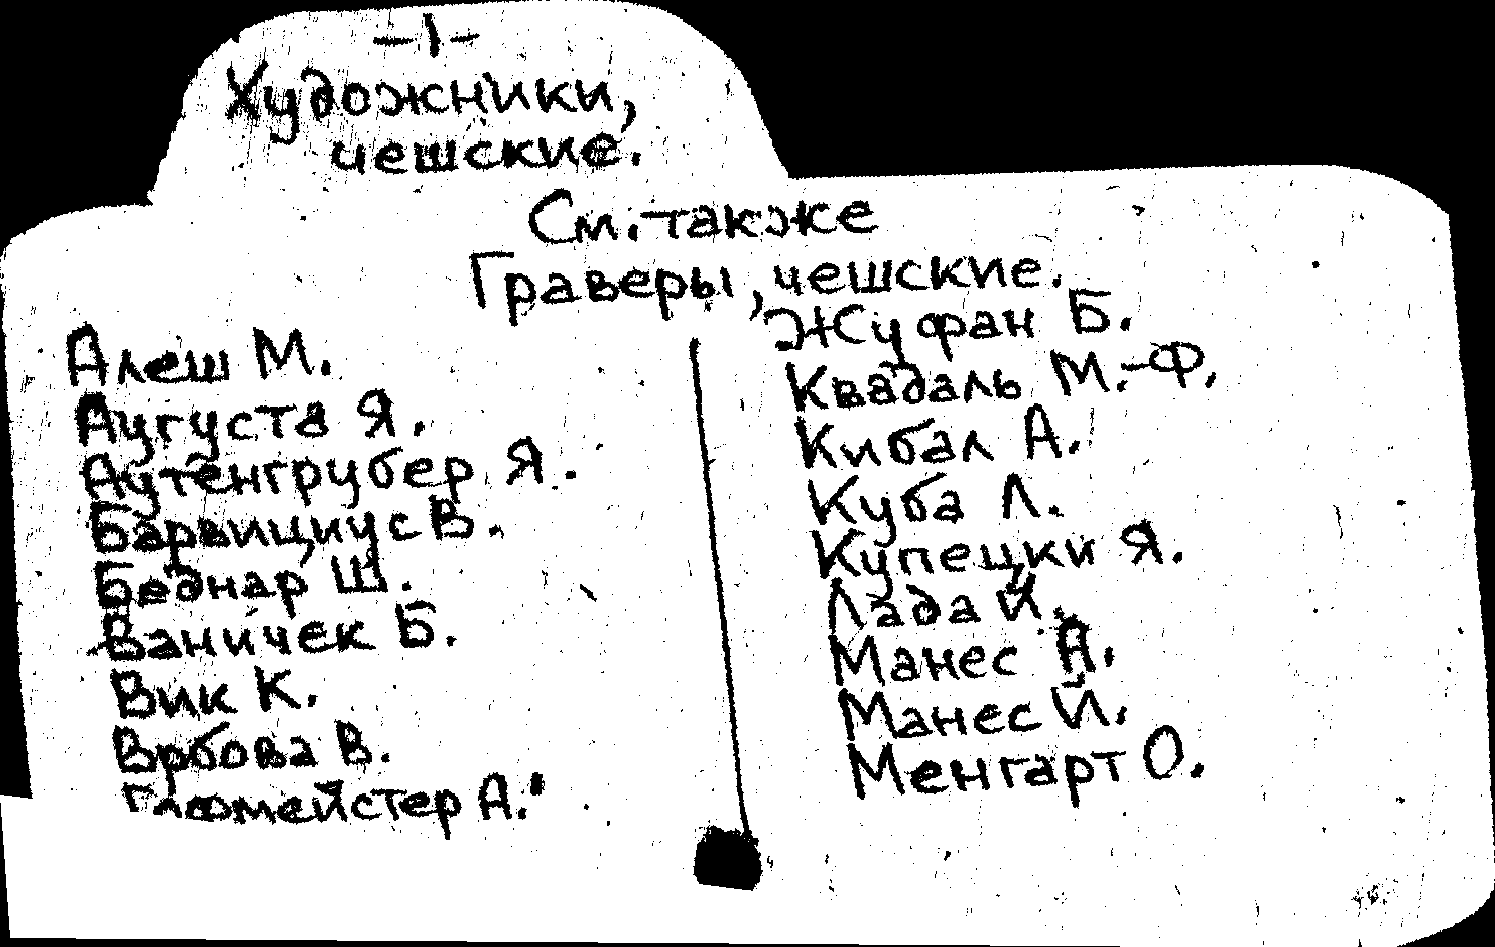 -1-
Художники,
чешские.
См. также
Граверы, чешские.
Алеш М.
Аугуста Я.
Аутенгрубер Я.
Барвициус В.
Беднар Ш.
Ваничек Б.
Вик К.
Врбова В.
Гофмейстер А.
Жуфан Б.
Квадаль М.-Ф.
Кибал А.
Куба Л.
Купецки Я.
Лада Й.
Манес А.
Манес Й.
Менгарт О.